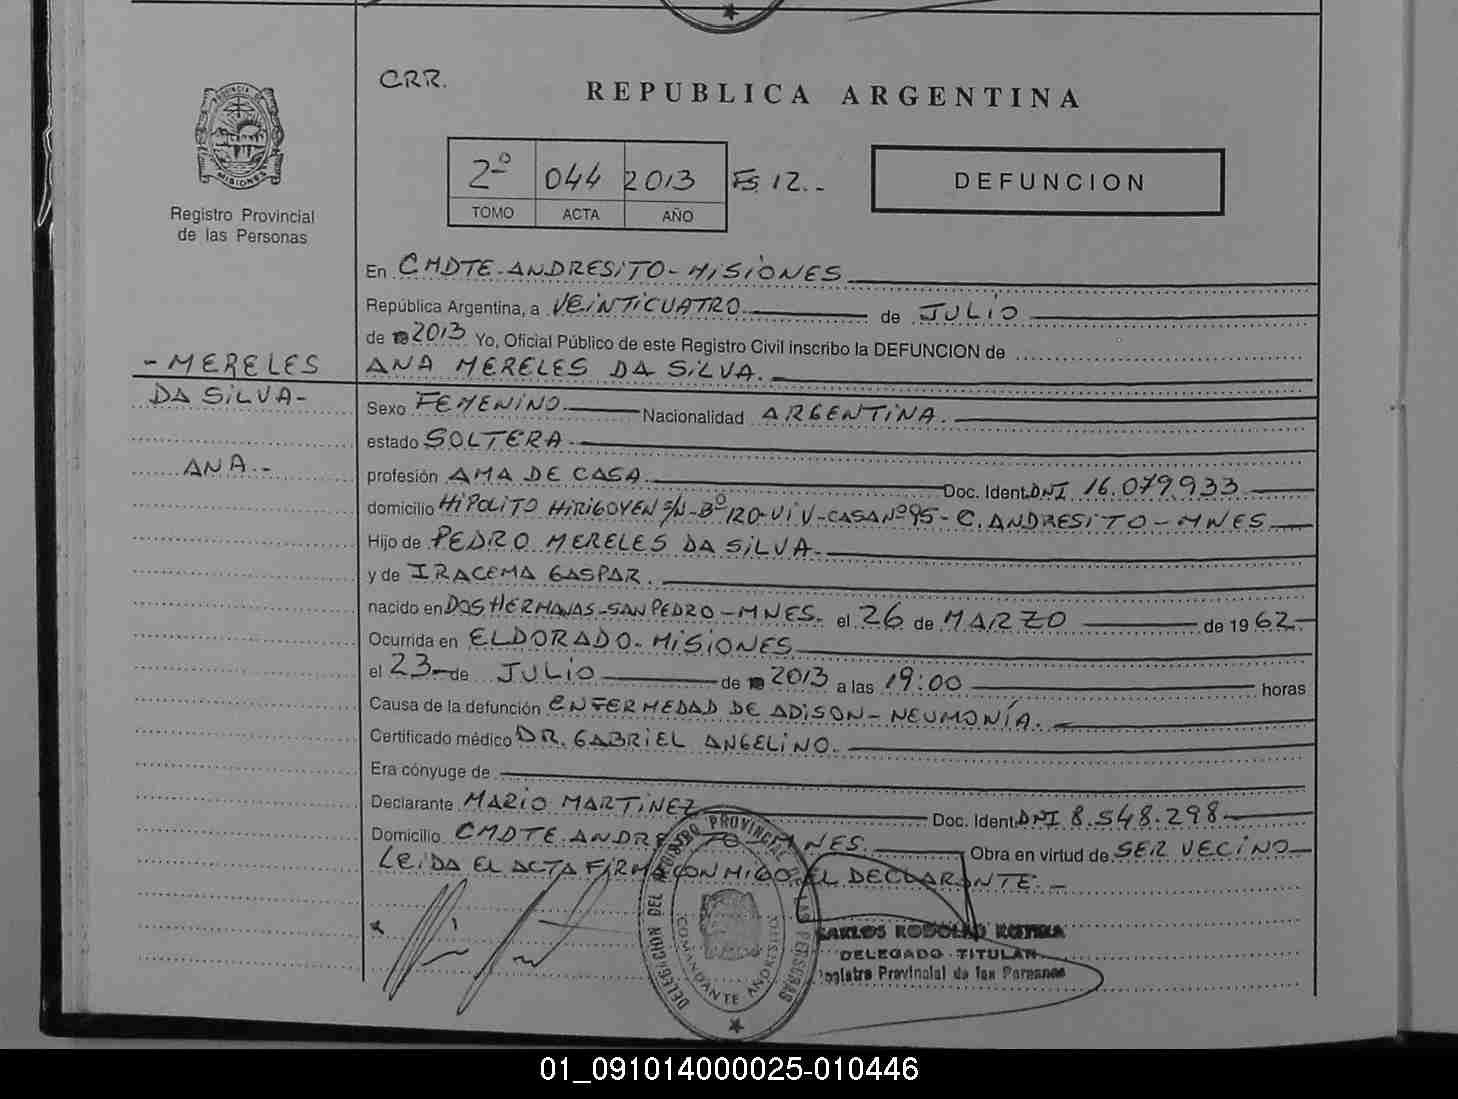 CRR.
REPUBLICA ARGENTINA
PROVINCIA DE
MISIONES
Registro Provincial
de las Personas
2º 044 2013 Fs 12.-
TOMO ACTA AÑO
DEFUNCION
En CMDTE-ANDRESITO-MISIONES
República Argentina, a VEINTICUATRO de JULIO
de 2013 Yo, Oficial Público de este Registro Civil inscribo la DEFUNCION de
- MERELES
DA SILVA-
ANA.-
ANA MERELES DA SILVA.
Sexo FEMENINO Nacionalidad ARGENTINA.
estado SOLTERA
profesión AMA DE CASA Doc. Ident. DNI 16.079.933
domicilio HIPOLITO HIRIGOYEN S/N-Bº 120-VIV-CASA Nº 95-C. ANDRESITO-MNES
Hijo de PEDRO MERELES DA SILVA
y de IRACEMA GASPAR.
nacido en DOS HERMANAS-SAN PEDRO-MNES. el 26 de MARZO de 1962
Ocurrida en ELDORADO-MISIONES
el 23 de JULIO de 2013 a las 19:00 horas
Causa de la defunción ENFERMEDAD DE ADISON-NEUMONÍA.
Certificado médico DR. GABRIEL ANGELINO.
Era cónyuge de
Declarante MARIO MARTINEZ Doc. Ident. DNI 8.548.298
Domicilio CMDTE ANDRESITO MNES. Obra en virtud de SER VECINO
LEIDA EL ACTA FIRMA CONMIGO EL DECLARANTE.-
DELEGACION DEL REGISTRO PROVINCIAL DE LAS PERSONAS
COMANDANTE ANDRESITO
CARLOS RODOLFO
DELEGADO TITULAR
Registro Provincial de las Personas
01_091014000025-010446